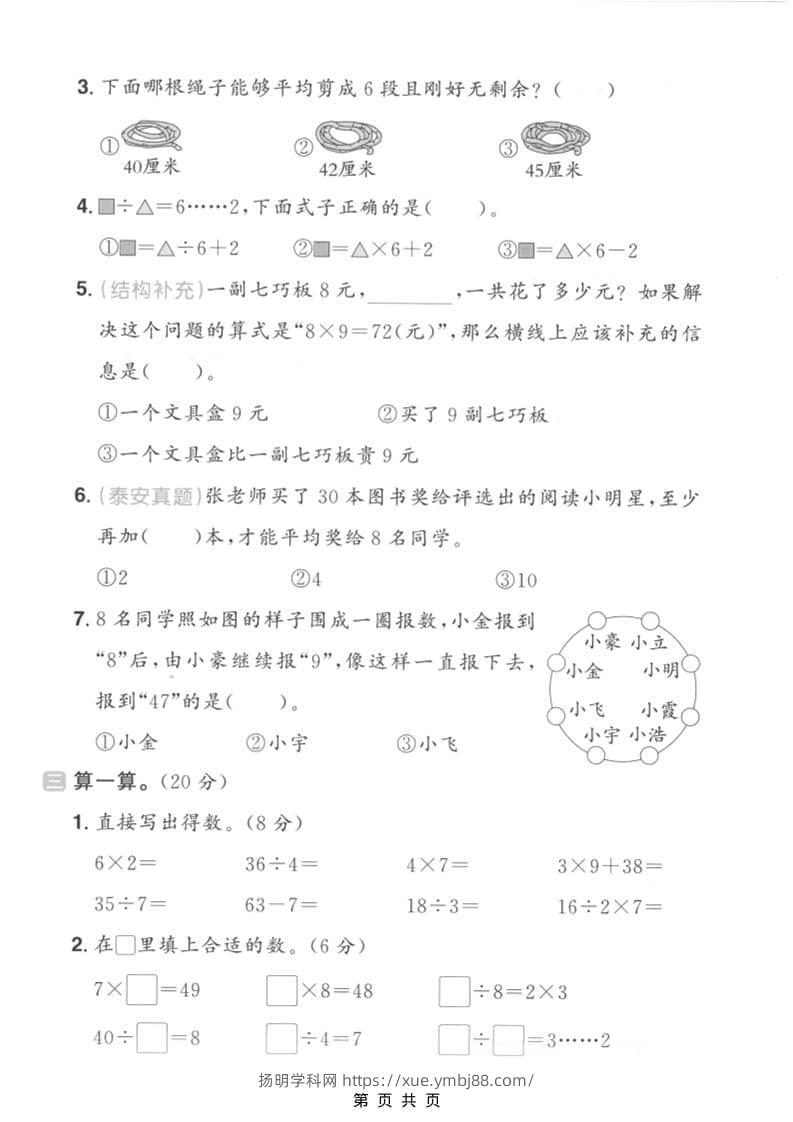 3. 下面哪根绳子能够平均剪成 6 段且刚好无剩余？（　　）
① ② ③
40厘米 42厘米 45厘米
4. ■÷△=6……2，下面式子正确的是（　　）。
①■=△÷6+2 ②■=△×6+2 ③■=△×6-2
5. (结构补充)一副七巧板 8 元，________，一共花了多少元？如果解
决这个问题的算式是“8×9=72(元)”，那么横线上应该补充的信
息是（　　）。
①一个文具盒 9 元 ②买了 9 副七巧板
③一个文具盒比一副七巧板贵 9 元
6. (泰安真题)张老师买了 30 本图书奖给评选出的阅读小明星，至少
再加（　　）本，才能平均奖给 8 名同学。
①2 ②4 ③10
7. 8 名同学照如图的样子围成一圈报数，小金报到
“8”后，由小豪继续报“9”，像这样一直报下去，
报到“47”的是（　　）。
①小金 ②小宇 ③小飞
小豪 小立
小金 小明
小飞 小霞
小宇 小浩
三 算一算。(20 分)
1. 直接写出得数。(8 分)
6×2= 36÷4= 4×7= 3×9+38=
35÷7= 63-7= 18÷3= 16÷2×7=
2. 在□里填上合适的数。(6 分)
7×□=49 □×8=48 □÷8=2×3
40÷□=8 □÷4=7 □÷□=3……2
扬明学科网 https://xue.ymbj88.com/
第 页 共 页